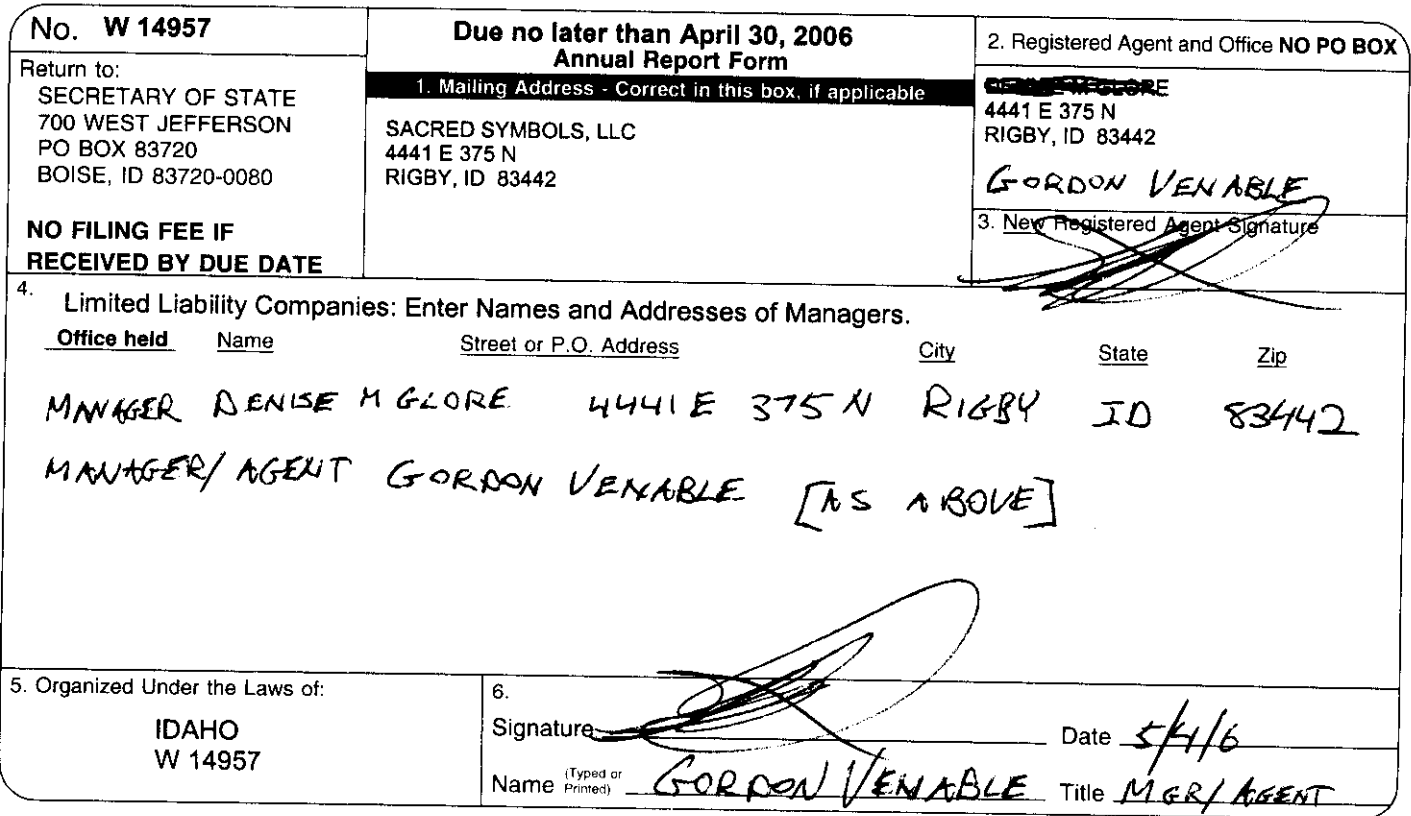 No. W 14957
Return to:
SECRETARY OF STATE
700 WEST JEFFERSON
PO BOX 83720
BOISE, ID 83720-0080
NO FILING FEE IF
RECEIVED BY DUE DATE
Due no later than April 30, 2006
Annual Report Form
1. Mailing Address - Correct in this box, if applicable
SACRED SYMBOLS, LLC
4441 E 375 N
RIGBY, ID 83442
2. Registered Agent and Office NO PO BOX
4441 E 375 N
RIGBY, ID 83442
GORDON VENABLE
3. New Registered Agent Signature
4.
Limited Liability Companies: Enter Names and Addresses of Managers.
Office held Name Street or P.O. Address City State Zip
MANAGER DENISE M GLORE 4441 E 375 N RIGBY ID 83442
MANAGER/AGENT GORDON VENABLE [AS ABOVE]
5. Organized Under the Laws of:
IDAHO
W 14957
6.
Signature Date 5/4/6
Name (Typed or Printed) GORDON VENABLE Title MGR/AGENT